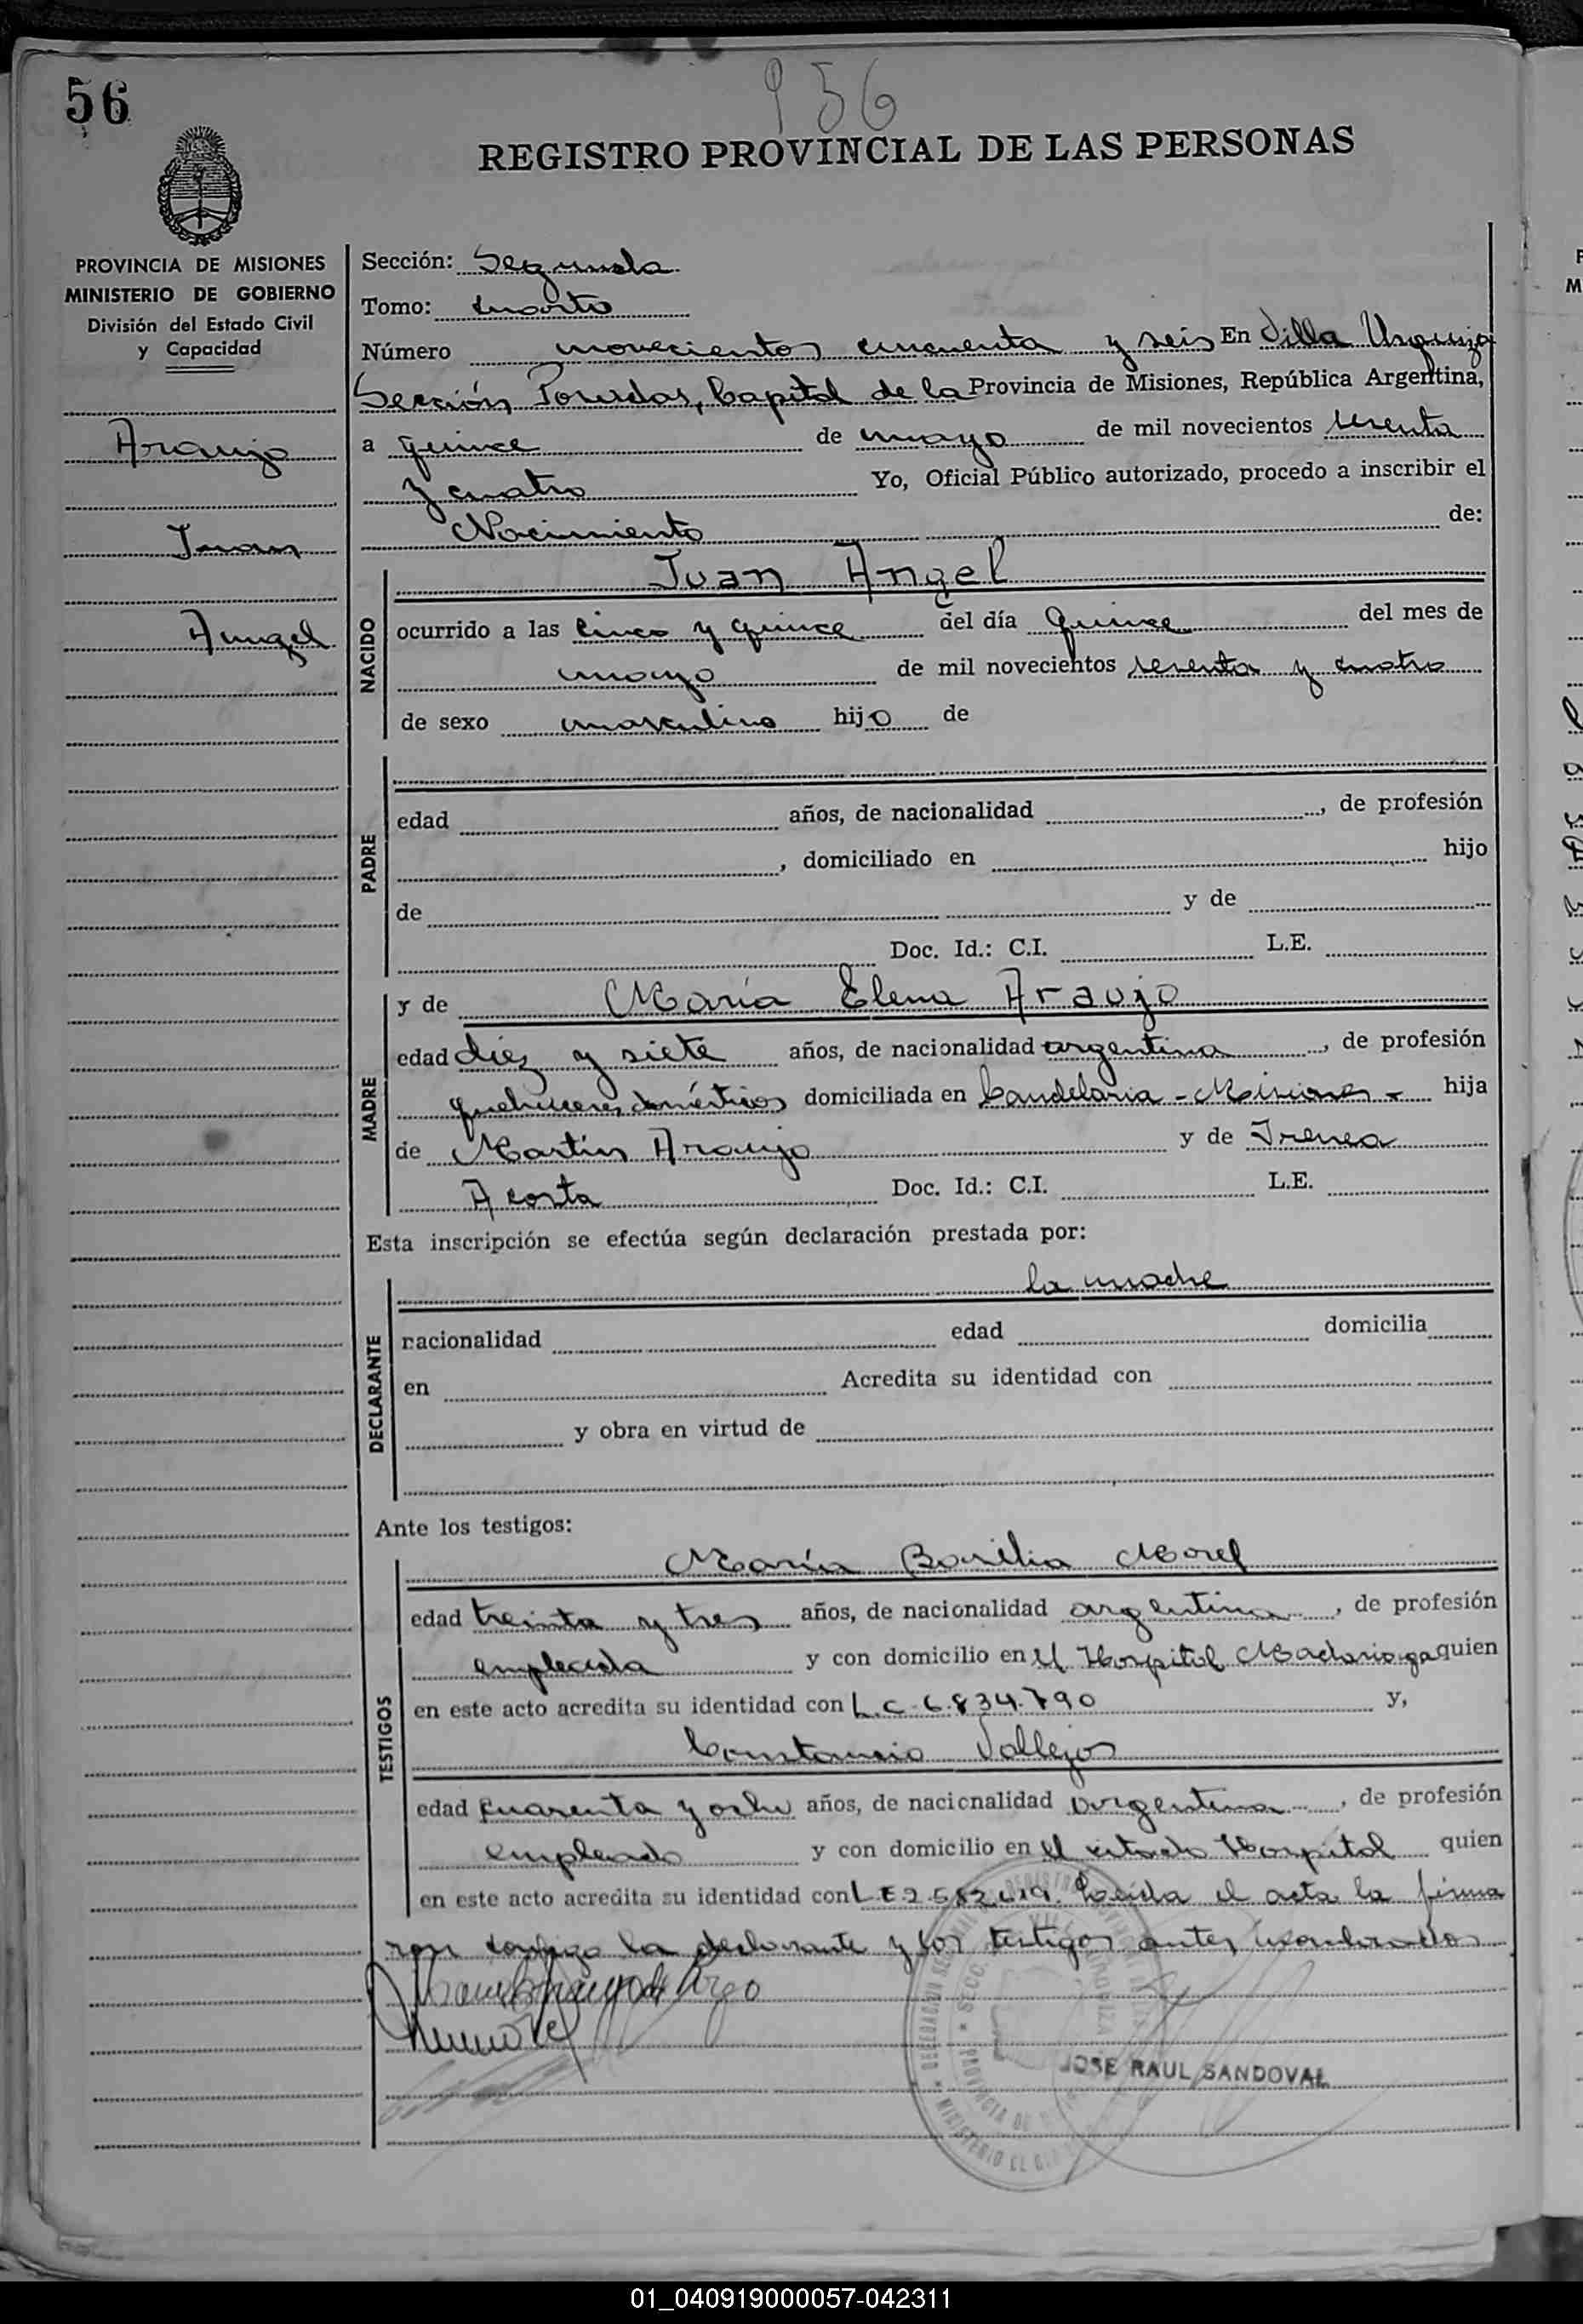 56
956
REGISTRO PROVINCIAL DE LAS PERSONAS
PROVINCIA DE MISIONES
MINISTERIO DE GOBIERNO
División del Estado Civil
y Capacidad
Araujo
Juan
Angel
Sección: Segunda
Tomo: cuarto
Número novecientos cincuenta y seis En Villa Urquiza
Sección Posadas, Capital de la Provincia de Misiones, República Argentina,
a quince de mayo de mil novecientos sesenta
y cuatro Yo, Oficial Público autorizado, procedo a inscribir el
Nacimiento de:
NACIDO
Juan Angel
ocurrido a las cinco y quince del día quince del mes de
mayo de mil novecientos sesenta y cuatro
de sexo masculino hijo de
PADRE
edad años, de nacionalidad , de profesión
, domiciliado en hijo
de y de
Doc. Id.: C.I. L.E.
MADRE
y de María Elena Araujo
edad diez y siete años, de nacionalidad argentina, de profesión
quehaceres domésticos domiciliada en Candelaria - Misiones - hija
de Martín Araujo y de Irenea
Acosta Doc. Id.: C.I. L.E.
Esta inscripción se efectúa según declaración prestada por:
DECLARANTE
la madre
nacionalidad edad domicilia
en Acredita su identidad con
y obra en virtud de
Ante los testigos:
TESTIGOS
María Basilia Morel
edad treinta y tres años, de nacionalidad argentina, de profesión
empleada y con domicilio en el Hospital Madariaga quien
en este acto acredita su identidad con L.C. 6.834.790 y,
Constancio Vallejos
edad cuarenta y ocho años, de nacionalidad argentina, de profesión
empleado y con domicilio en el citado Hospital quien
en este acto acredita su identidad con L E 2.582.619. Leída el acta la firma
ron conmigo la declarante y los testigos antes nombrados
JOSE RAUL SANDOVAL
01_040919000057-042311